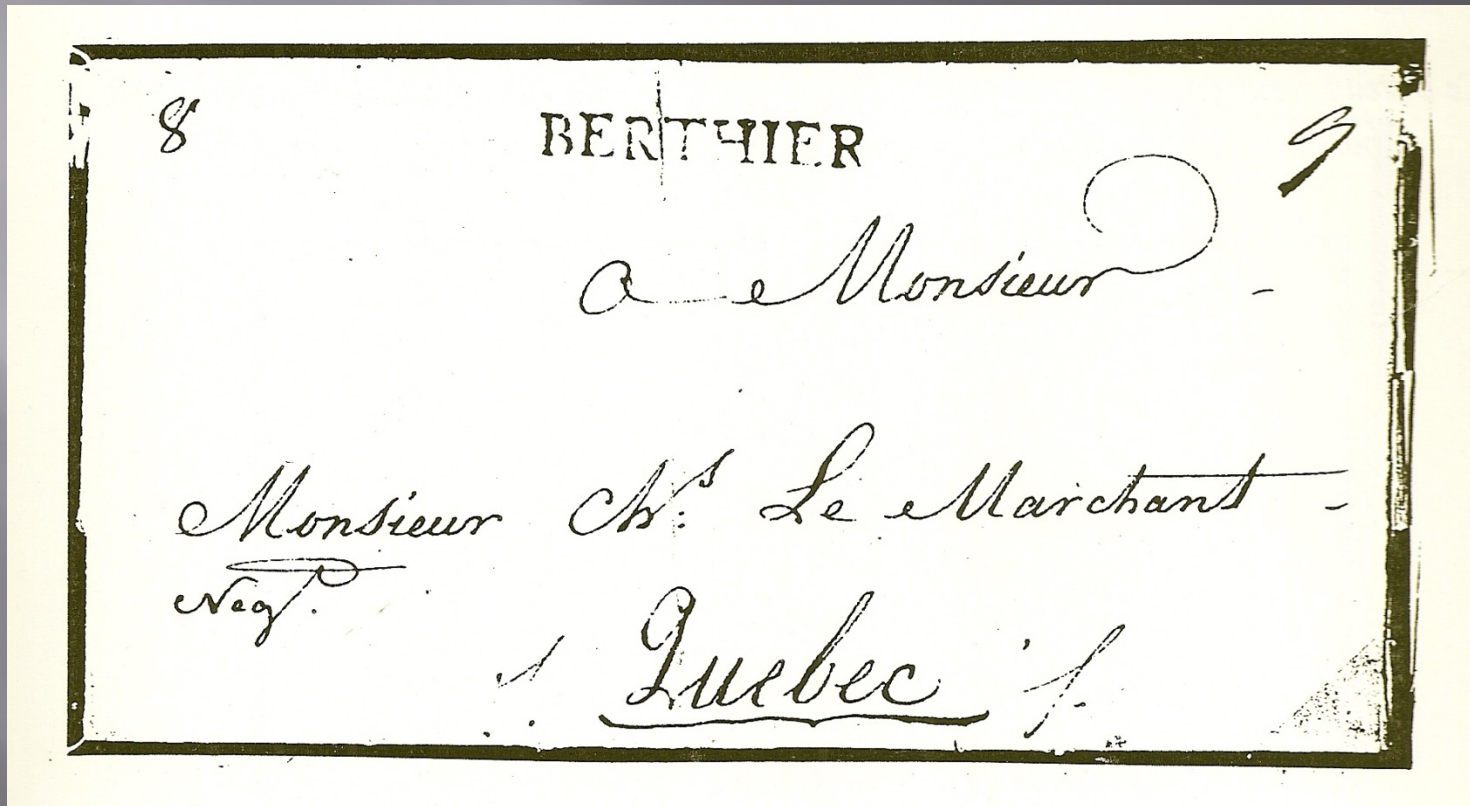 8 BERTHIER 9
a Monsieur -
Monsieur Chs. Le Marchant -
Negt.
Quebec